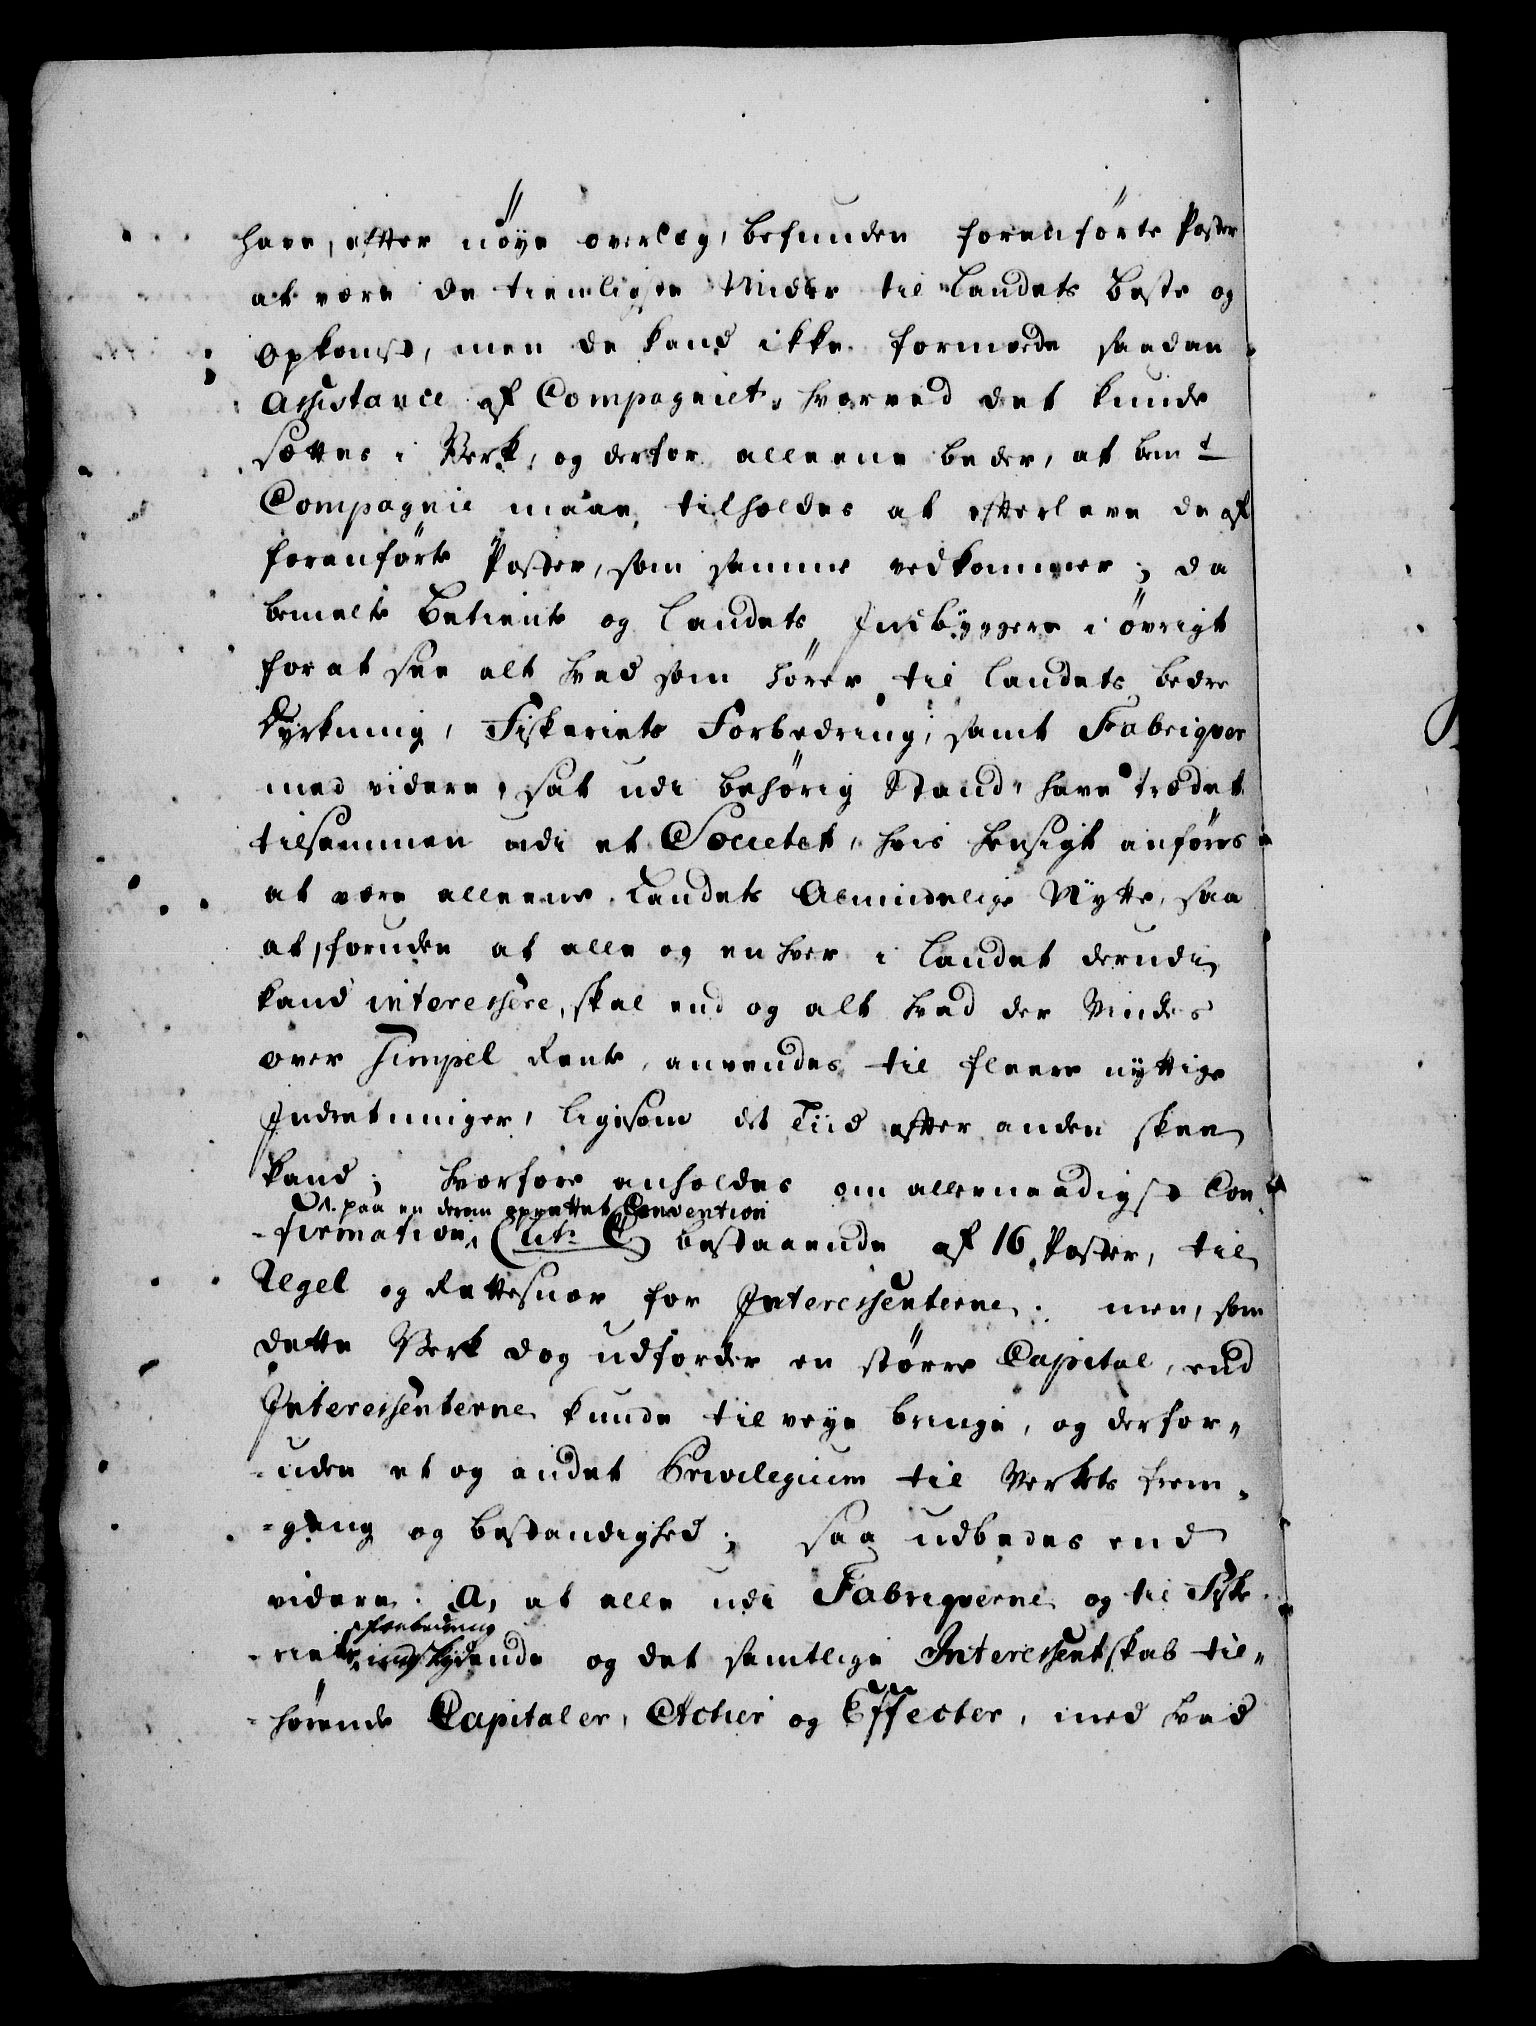 have, efter nöye overlæg, befunden foranførte Poster
at være de tienligste Midler til Landets Beste og
Opkomst, men de kand ikke formode saadan
Assistance af Compagniet, hvorved det kunde
sættes i Verk, og derfor alleene beder, at bemt
Compagnie maae tilholdes at efterleve de af
foranførte Poster, som samme vedkommer; da
bemelte Betiente og Landets Indbÿggere i övrigt
for at see alt hvad som hører til Landets bedre
Dÿrkning, Fiskeriets Forbedring, samt Fabriqver
med videre, sat udi behørig Stand, have trædet
tilsammen udi et Societet, hvis hensigt anføres
at være alleene Landets Almindelige Nÿtte, saa
at, foruden at alle og enhver i Landet derudi
kand interessere, skal end og alt hvad der Vindes
over Simpel Rente, anvendes til fleere nÿttige
Indretninger, ligesom det Tiid efter anden skee
kand; hvorfore anholdes om allernaadigst Con-
paa en derom oprettet Convention
-firmation, (Litr: C) bestaaende af 16 Poster, til
Regel og Rettesnor for Interessenterne; men, som
dette Verk dog udfordrer en större Capital, end
Interessenterne kunde tilveye bringe, og derfor-
-uden et og andet Privilegium til Verkets frem-
-gang og bestandighed; saa udbedes end
videre: A, at alle udi Fabriqverne og til Fiske-
Forbedring
-riets indskydende og det samtlige Interessentskab til-
-hørende Capitaler, Actier og Effecter, med hvad